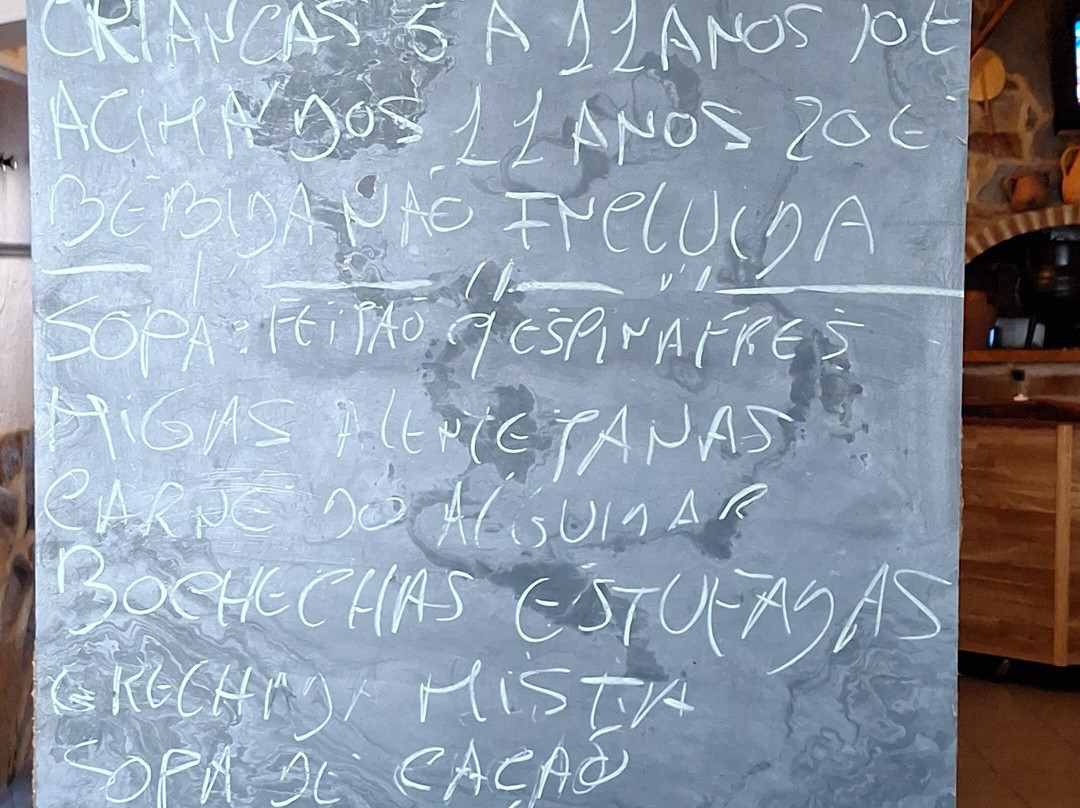 CRIANÇAS 5 A 11 ANOS 10€
ACIMA DOS 11 ANOS 20€
BEBIDA NÃO INCLUIDA
SOPA: FEIJÃO C/ ESPINAFRES
MIGAS ALENTEJANAS
CARNE DO ALGUIDAR
BOCHECHAS ESTUFADAS
GRELHADA MISTA
SOPA DE CAÇÃO